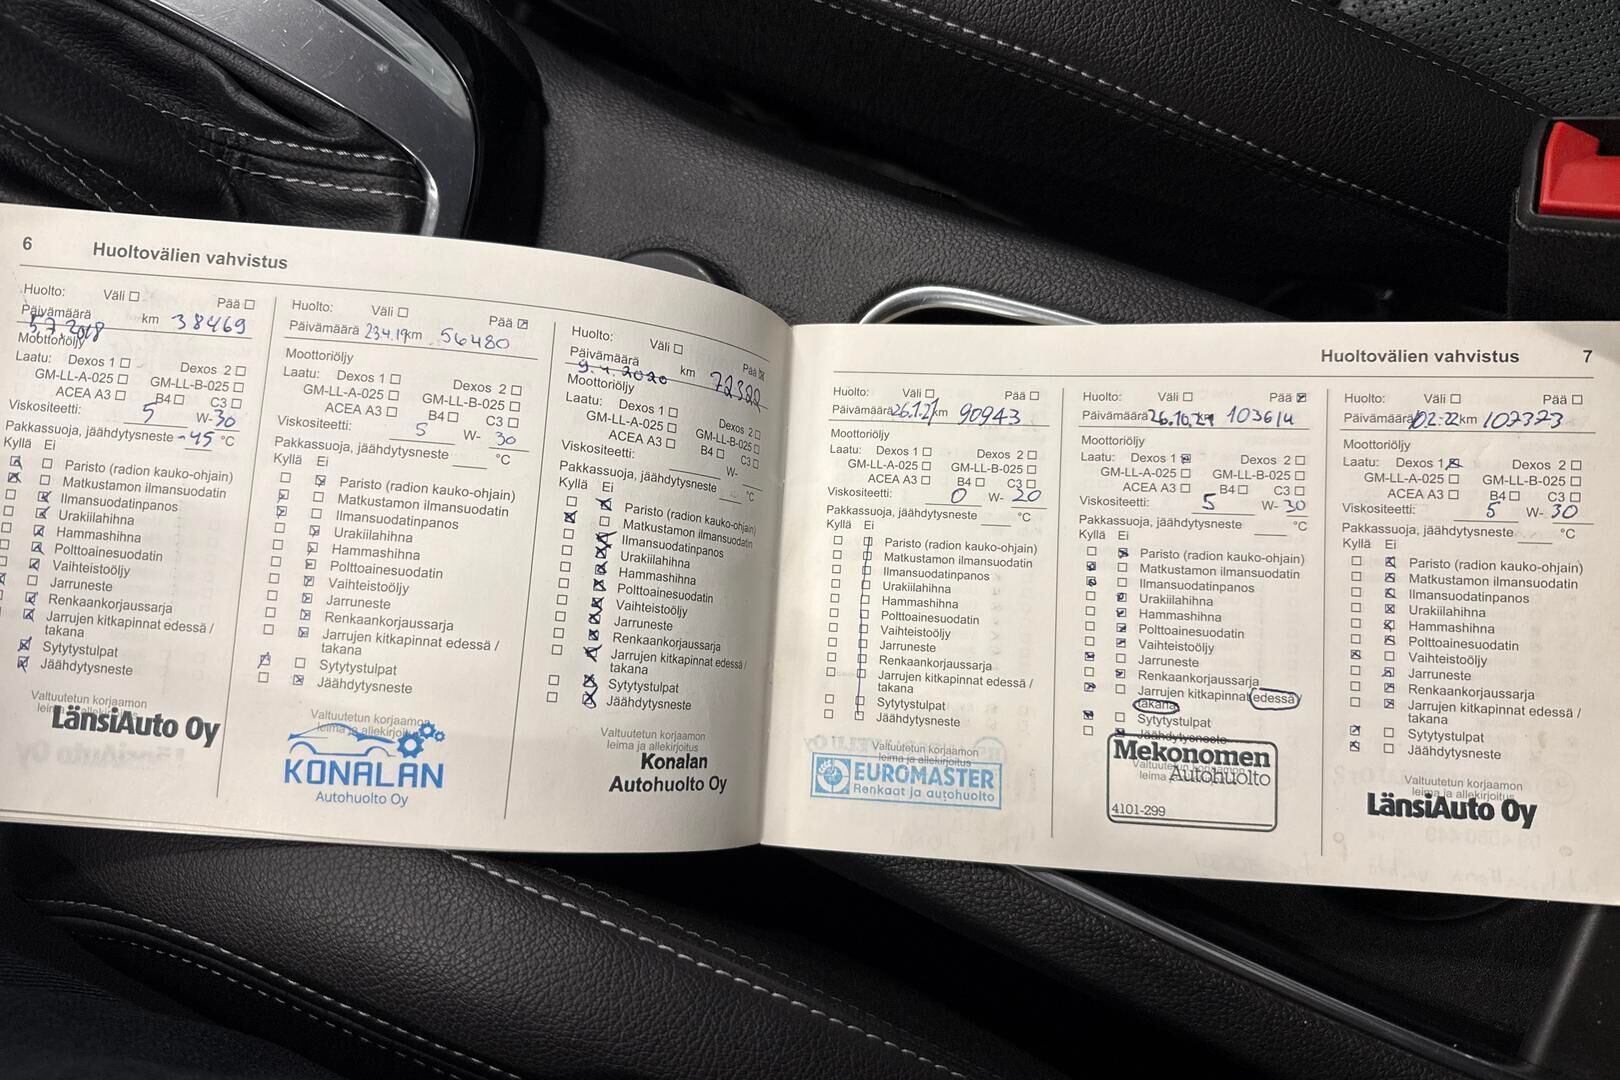 6
Huoltovälien vahvistus
Huolto: Väli Pää
Päivämäärä 5.7.2018 km 38469
Moottoriöljy
Laatu: Dexos 1 Dexos 2
GM-LL-A-025 GM-LL-B-025
ACEA A3 B4 C3
Viskositeetti: 5 W- 30
Pakkassuoja, jäähdytysneste -45 °C
Kyllä Ei
Paristo (radion kauko-ohjain)
Matkustamon ilmansuodatin
Ilmansuodatinpanos
Urakiilahihna
Hammashihna
Polttoainesuodatin
Vaihteistoöljy
Jarruneste
Renkaankorjaussarja
Jarrujen kitkapinnat edessä /
takana
Sytytystulpat
Jäähdytysneste
Valtuutetun korjaamon
leima ja allekirjoitus
LänsiAuto Oy
Huolto: Väli Pää
Päivämäärä 23.4.19 km 56480
Moottoriöljy
Laatu: Dexos 1 Dexos 2
GM-LL-A-025 GM-LL-B-025
ACEA A3 B4 C3
Viskositeetti: 5 W- 30
Pakkassuoja, jäähdytysneste °C
Kyllä Ei
Paristo (radion kauko-ohjain)
Matkustamon ilmansuodatin
Ilmansuodatinpanos
Urakiilahihna
Hammashihna
Polttoainesuodatin
Vaihteistoöljy
Jarruneste
Renkaankorjaussarja
Jarrujen kitkapinnat edessä /
takana
Sytytystulpat
Jäähdytysneste
Valtuutetun korjaamon
leima ja allekirjoitus
KONALAN
Autohuolto Oy
Huolto: Väli Pää
Päivämäärä 9.4.2020 km 72322
Moottoriöljy
Laatu: Dexos 1 Dexos 2
GM-LL-A-025 GM-LL-B-025
ACEA A3 B4 C3
Viskositeetti: W-
Pakkassuoja, jäähdytysneste °C
Kyllä Ei
Paristo (radion kauko-ohjain)
Matkustamon ilmansuodatin
Ilmansuodatinpanos
Urakiilahihna
Hammashihna
Polttoainesuodatin
Vaihteistoöljy
Jarruneste
Renkaankorjaussarja
Jarrujen kitkapinnat edessä /
takana
Sytytystulpat
Jäähdytysneste
Valtuutetun korjaamon
leima ja allekirjoitus
Konalan
Autohuolto Oy
Huoltovälien vahvistus
7
Huolto: Väli Pää
Päivämäärä 26.1.21 km 90943
Moottoriöljy
Laatu: Dexos 1 Dexos 2
GM-LL-A-025 GM-LL-B-025
ACEA A3 B4 C3
Viskositeetti: 0 W- 20
Pakkassuoja, jäähdytysneste °C
Kyllä Ei
Paristo (radion kauko-ohjain)
Matkustamon ilmansuodatin
Ilmansuodatinpanos
Urakiilahihna
Hammashihna
Polttoainesuodatin
Vaihteistoöljy
Jarruneste
Renkaankorjaussarja
Jarrujen kitkapinnat edessä /
takana
Sytytystulpat
Jäähdytysneste
Valtuutetun korjaamon
leima ja allekirjoitus
EUROMASTER
Renkaat ja autohuolto
Huolto: Väli Pää
Päivämäärä 26.10.21 km 103614
Moottoriöljy
Laatu: Dexos 1 Dexos 2
GM-LL-A-025 GM-LL-B-025
ACEA A3 B4 C3
Viskositeetti: 5 W- 30
Pakkassuoja, jäähdytysneste °C
Kyllä Ei
Paristo (radion kauko-ohjain)
Matkustamon ilmansuodatin
Ilmansuodatinpanos
Urakiilahihna
Hammashihna
Polttoainesuodatin
Vaihteistoöljy
Jarruneste
Renkaankorjaussarja
Jarrujen kitkapinnat edessä /
takana
Sytytystulpat
Jäähdytysneste
Mekonomen
Valtuutetun korjaamon
leima Autohuolto
4101-299
Huolto: Väli Pää
Päivämäärä 02-22 km 107373
Moottoriöljy
Laatu: Dexos 1 Dexos 2
GM-LL-A-025 GM-LL-B-025
ACEA A3 B4 C3
Viskositeetti: 5 W- 30
Pakkassuoja, jäähdytysneste °C
Kyllä Ei
Paristo (radion kauko-ohjain)
Matkustamon ilmansuodatin
Ilmansuodatinpanos
Urakiilahihna
Hammashihna
Polttoainesuodatin
Vaihteistoöljy
Jarruneste
Renkaankorjaussarja
Jarrujen kitkapinnat edessä /
takana
Sytytystulpat
Jäähdytysneste
Valtuutetun korjaamon
leima ja allekirjoitus
LänsiAuto Oy